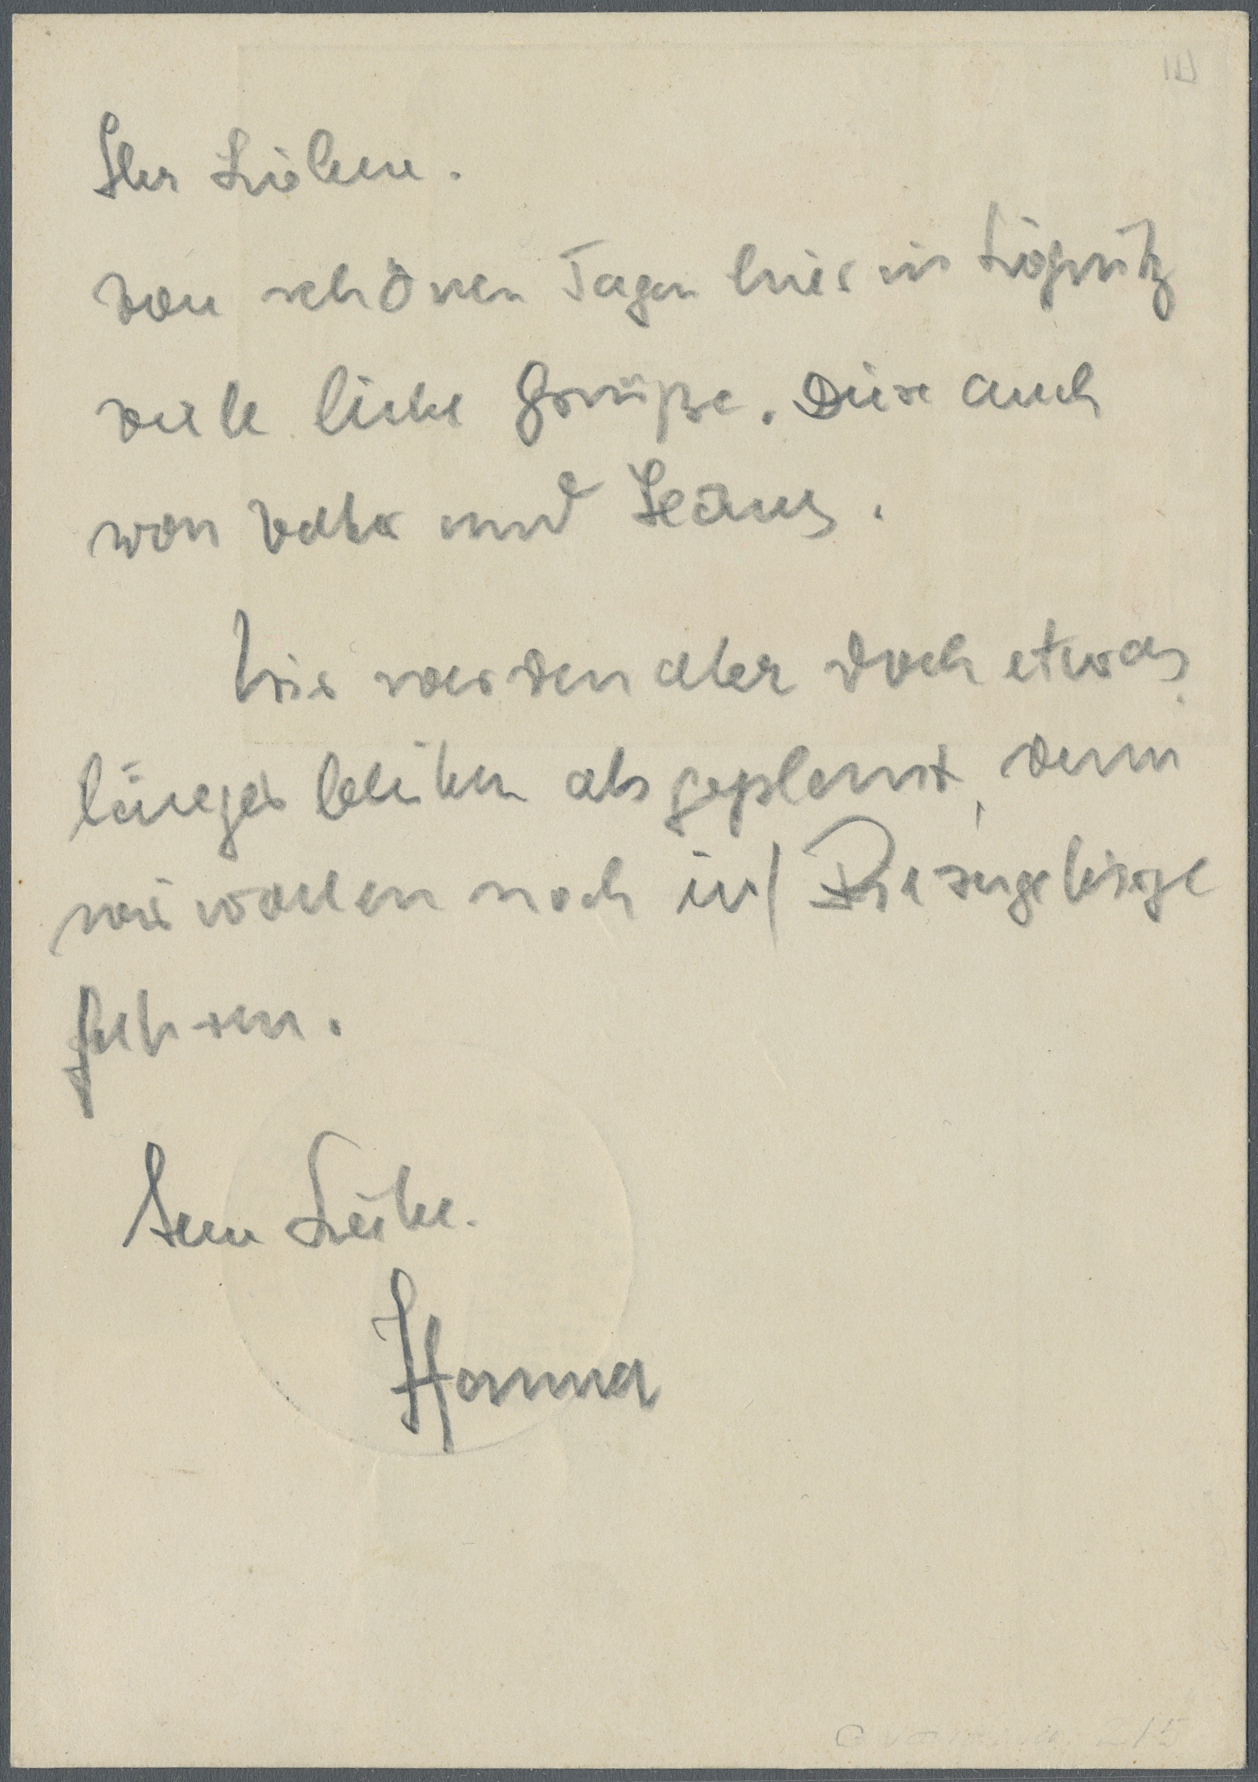 Ihr Lieben.
von schönen Tagen hier in Liegnitz
viele liebe Grüße. Diese auch
von Vater und Klaus.
Wir werden aber doch etwas
länger bleiben als geplant, denn
wir wollen noch in's Riesengebirge
fahren.
Liebe.
Hanna